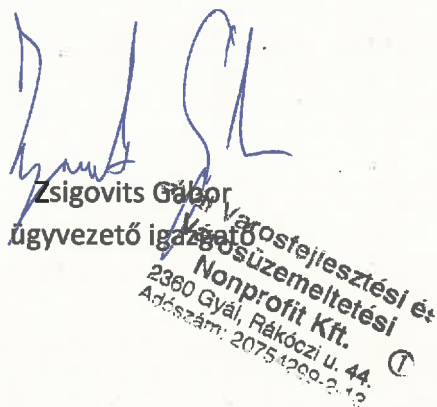 Zsigovits Gábor
ügyvezető igazgató
Városfejlesztési és
Városüzemeltetési
Nonprofit Kft.
2360 Gyál, Rákóczi u. 44.
Adószám: